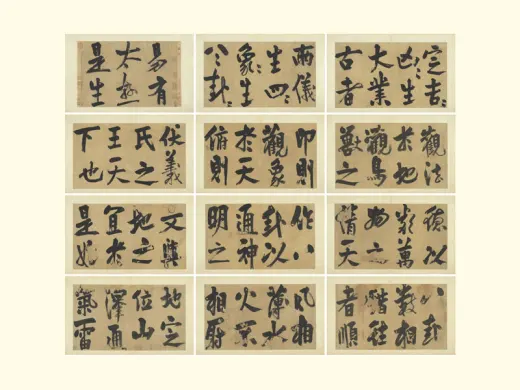 易有
太極
是生
兩〻儀〻
生四〻
象〻生
八〻卦〻
定吉〻
凶〻生
大業
古者
伏羲
氏之
王天
下也
仰則
觀象
於天
俯則
觀法
於地
觀鳥
獸之
文與
地之
宜於
是始
作八
卦以
通神
明之
德以
類萬
物之
情天
地定
位山
澤通
氣雷
風相
薄水
火不
相射
八卦
數相
錯往
者順